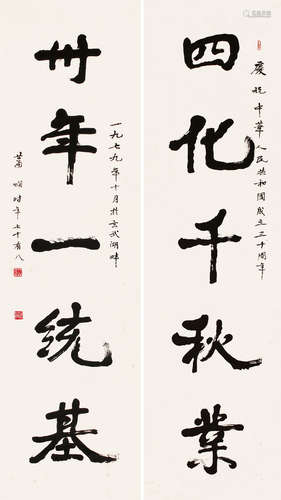 四化千秋業
慶祝中華人民共和國成立三十周年
卅年一統基
一九七九年十月於玄武湖畔
蕭嫻時年七十有八